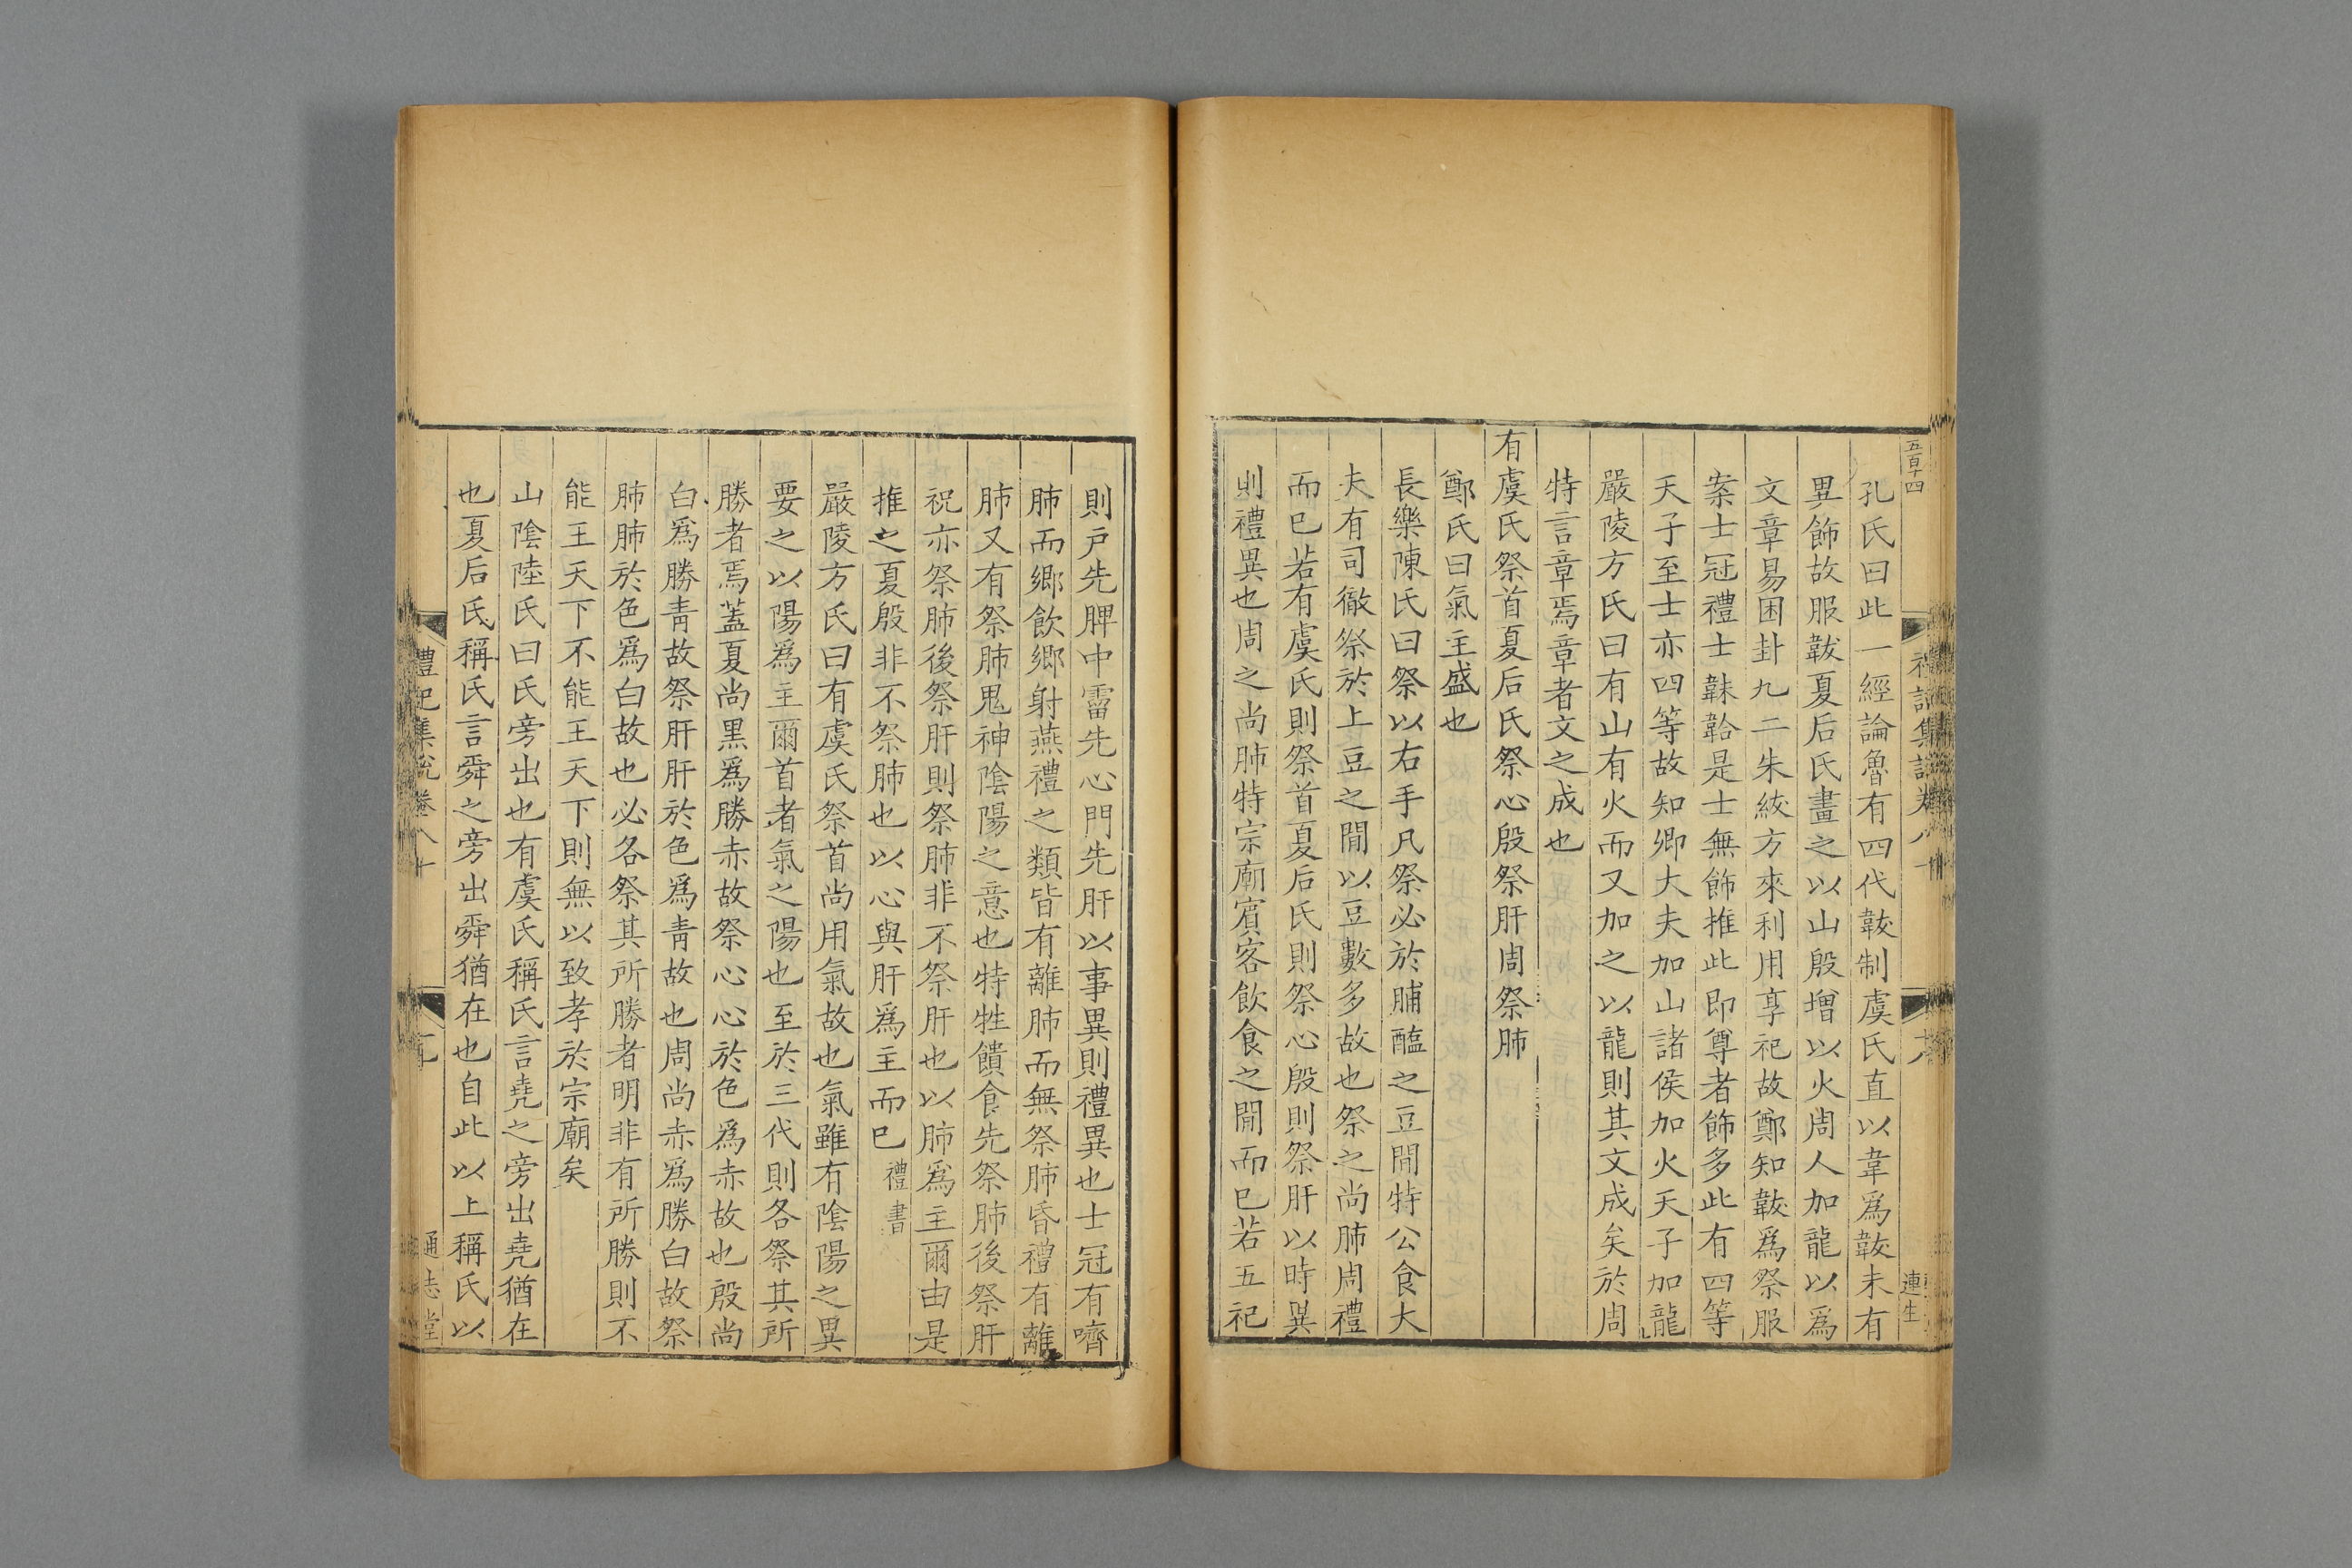 五百十四
禮記集說卷八十
連生
孔氏曰此一經論魯有四代韍制虞氏直以韋爲韍未有
異飾故服韍夏后氏畫之以山殷增以火周人加龍以爲
文章易困卦九二朱紱方來利用享祀故鄭知韍爲祭服
案士冠禮士韎韐是士無飾推此即尊者飾多此有四等
天子至士亦四等故知卿大夫加山諸侯加火天子加龍
嚴陵方氏曰有山有火而又加之以龍則其文成矣於周
特言章焉章者文之成也
有虞氏祭首夏后氏祭心殷祭肝周祭肺
鄭氏曰氣主盛也
長樂陳氏曰祭以右手凡祭必於脯醢之豆閒特公食大
夫有司徹祭於上豆之閒以豆數多故也祭之尚肺周禮
而已若有虞氏則祭首夏后氏則祭心殷則祭肝以時異
則禮異也周之尚肺特宗廟賓客飲食之閒而已若五祀
則戸先脾中霤先心門先肝以事異則禮異也士冠有嚌
肺而鄉飲鄉射燕禮之類皆有離肺而無祭肺昏禮有離
肺又有祭肺鬼神陰陽之意也特牲饋食先祭肺後祭肝
祝亦祭肺後祭肝則祭肺非不祭肝也以肺爲主爾由是
推之夏殷非不祭肺也以心與肝爲主而已禮書
嚴陵方氏曰有虞氏祭首尚用氣故也氣雖有陰陽之異
要之以陽爲主爾首者氣之陽也至於三代則各祭其所
勝者焉蓋夏尚黑爲勝赤故祭心心於色爲赤故也殷尚
白爲勝靑故祭肝肝於色爲靑故也周尚赤爲勝白故祭
肺肺於色爲白故也必各祭其所勝者明非有所勝則不
能王天下不能王天下則無以致孝於宗廟矣
山陰陸氏曰氏旁出也有虞氏稱氏言堯之旁出堯猶在
也夏后氏稱氏言舜之旁出舜猶在也自此以上稱氏以
禮記集說卷八十
通志堂